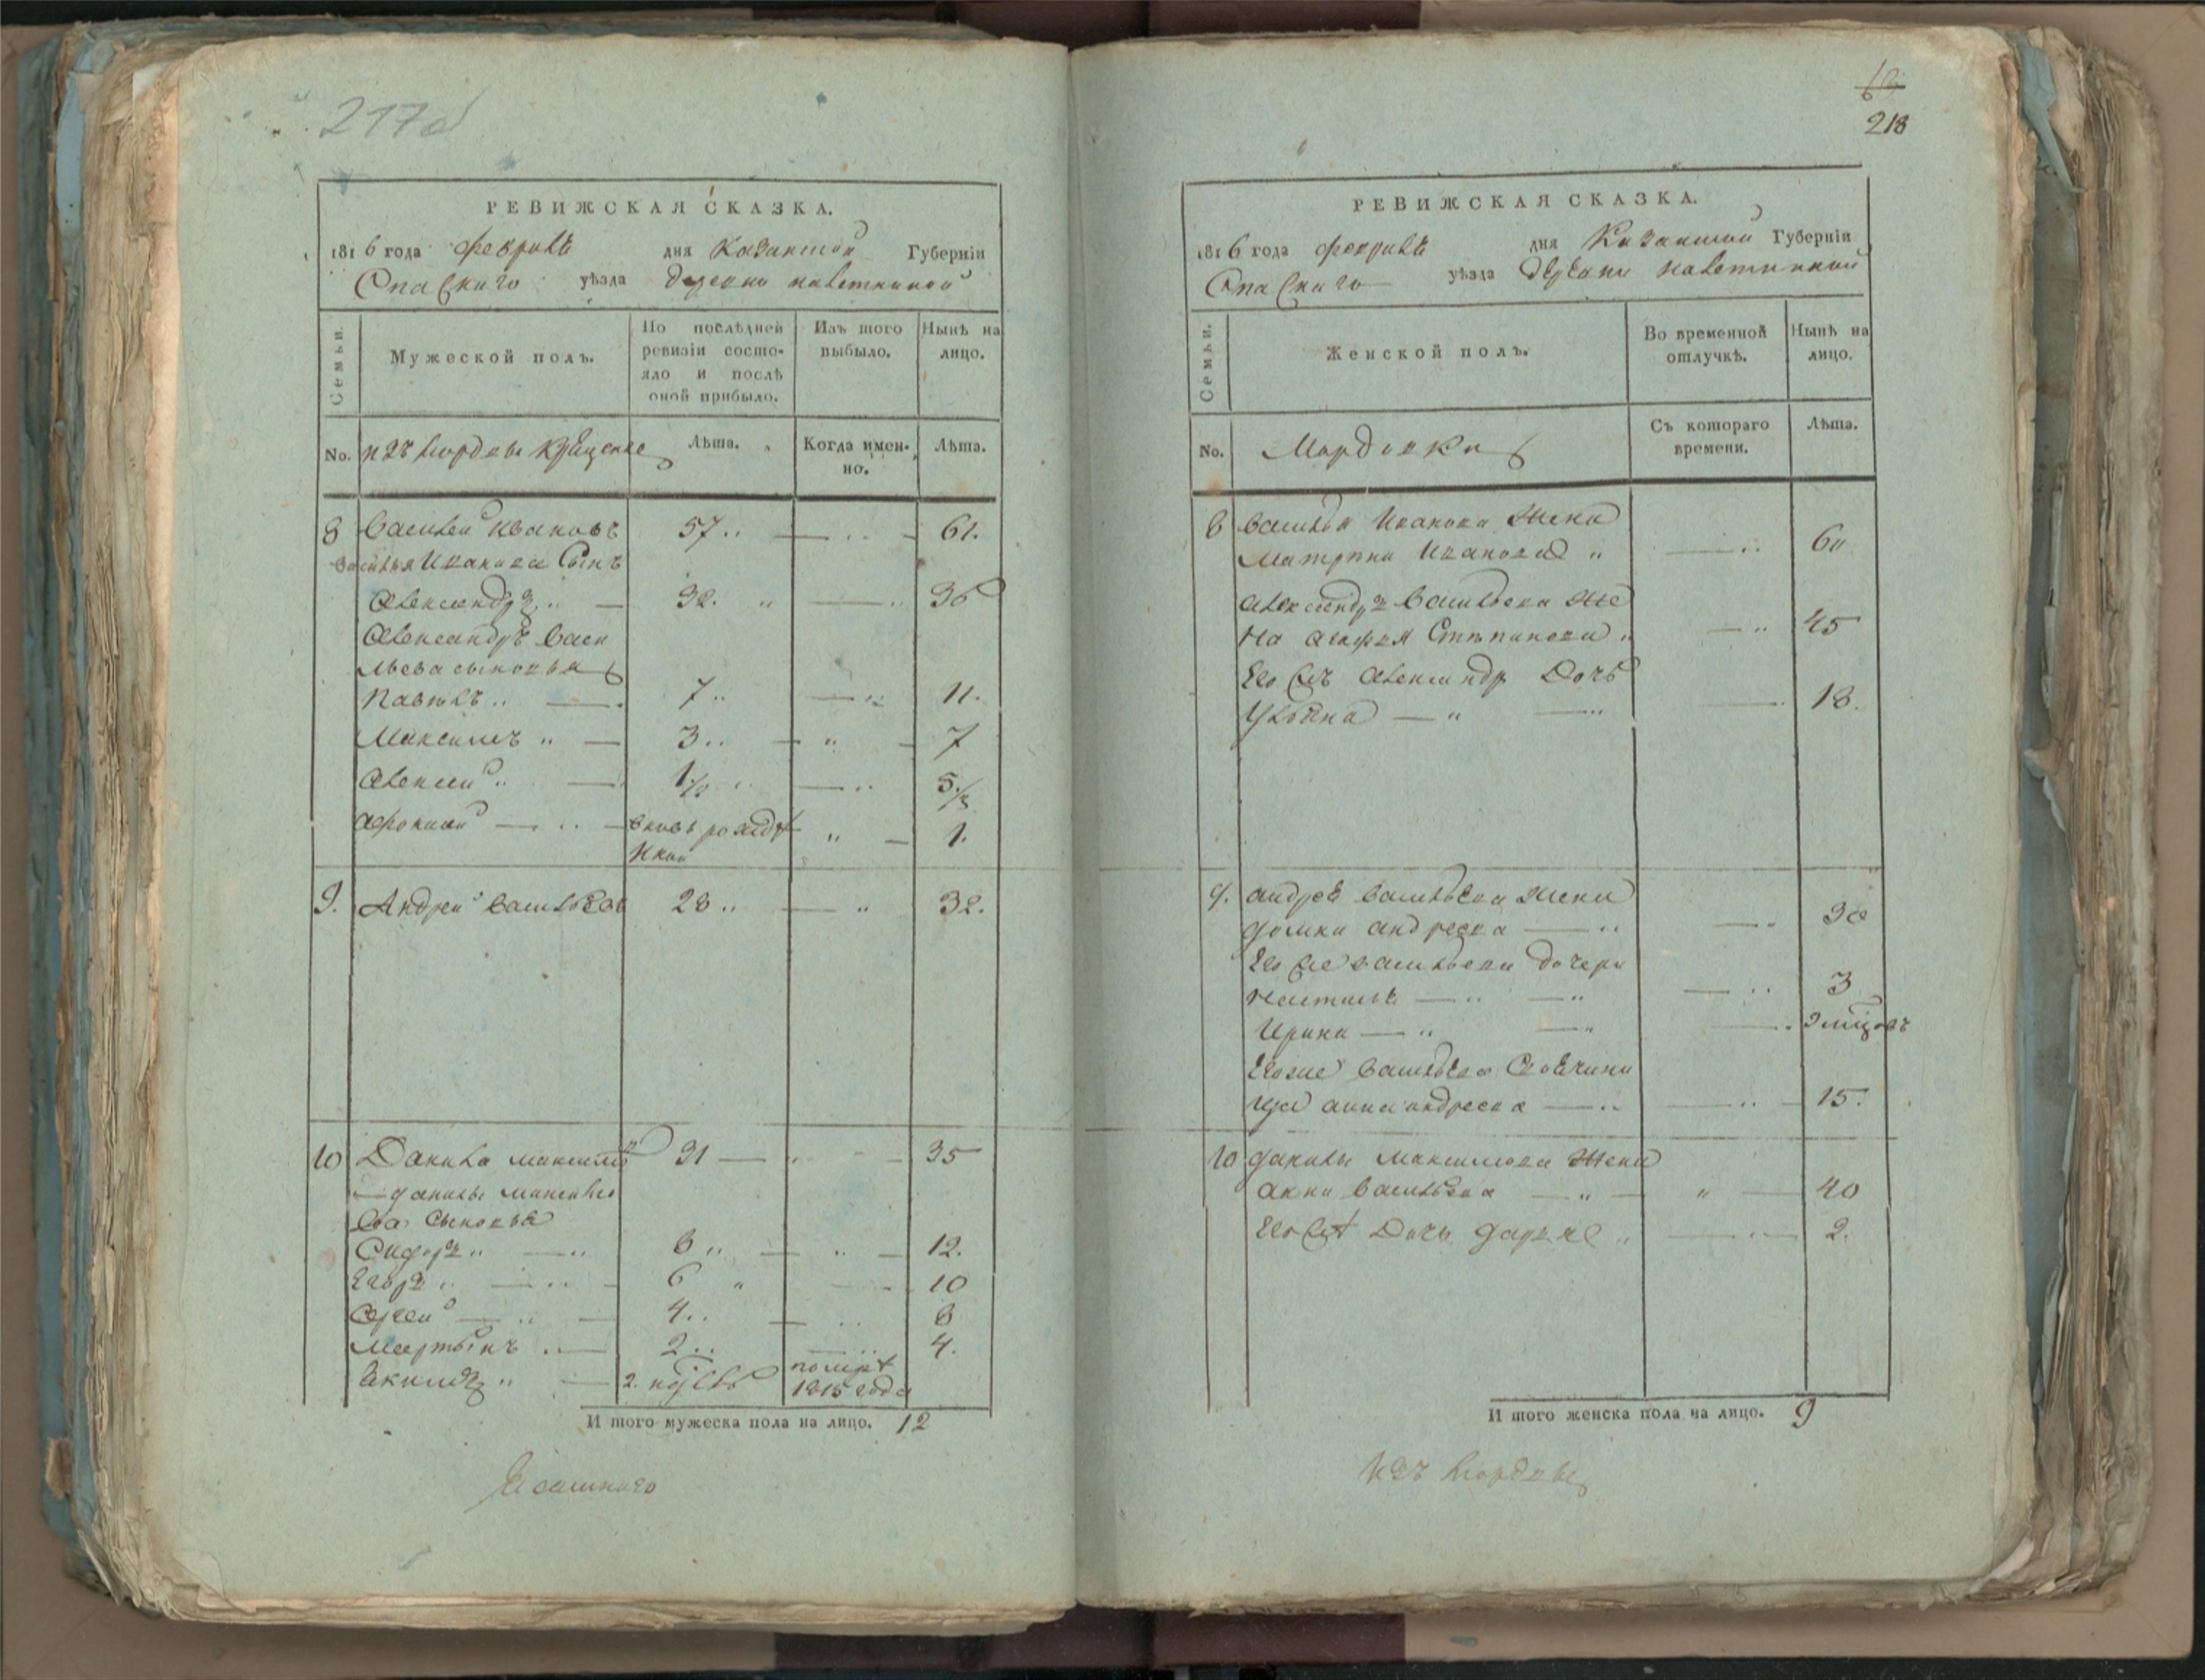 217об
РЕВИЖСКАЯ СКАЗКА.
1816 года февраля дня Казанской Губерніи
Спаскаго уѣзда деревни
Семьи.
Мужеской полъ.
По послѣдней ревизіи состо-
яло и послѣ
оной прибыло.
Изъ того
выбыло.
Нынѣ на
лицо.
No. изъ мордвы крещеные
Лѣта.
Когда имен-
но.
Лѣта.
8 Василей Ивановъ 57 61.
Василья Иванова Сынъ
Александръ 32. 36
Александръ Васи
льева сыновья
Павелъ 7 11.
Максимъ 3 7
Алексей 1/2 5/
Афонасей вновь рожден
ной 1.
9. Андрей Васильевъ 28 32.
10 Данила Максимовъ 31 35
Данилы Максимо
ва Сыновья
Сидоръ 8 12.
Егоръ 6 10
Сергей 4 8
Мартынъ 2 4.
2. помре
1815 года
И того мужеска пола на лицо. 12
Ясашнаго
218
РЕВИЖСКАЯ СКАЗКА.
1816 года февраля дня Казанской Губерніи
Спаскаго уѣзда деревни
Семьи.
Женской полъ.
Во временной
отлучкѣ.
Нынѣ на
лицо.
No. Мордовки
Съ котораго
времени.
Лѣта.
8 Василья Иванова Жена
Матрена Иванова 60
Александръ Васильева Же
на Агафья Степанова 45
Его Съ Александр Дочь
Ульяна 18.
9. Андрея Васильева Жена
Домна Андреева 30
Его Же Васильева дочери
Настасья 3
Ирина
Его же Васильева Своячини
ца Анна Андреева 15.
10 Данилы Максимова Жена
Анна Васильева 40
Дочь Дарья 2.
И того женска пола на лицо. 9
изъ мордвы